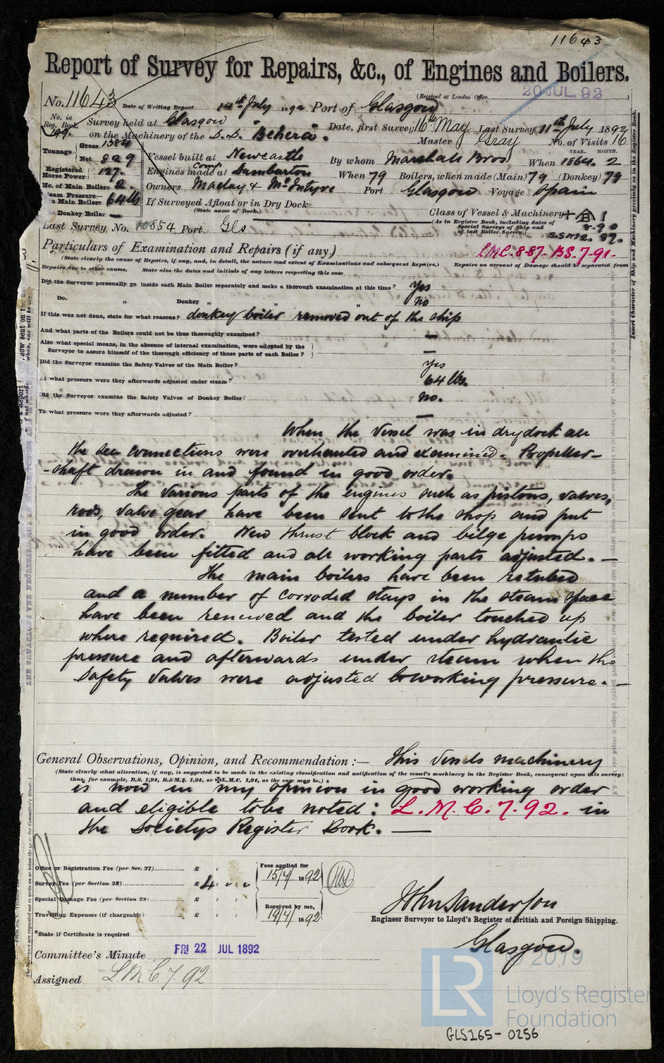 11643
Report of Survey for Repairs, &c., of Engines and Boilers.
(Received at London Office 20 JUL 92
No. 11643 Date of Writing Report 14th July 1892 Port of Glasgow
No. in Reg. Book. Survey held at Glasgow Date, first Survey 16th May Last Survey 11th July 1892
199 on the Machinery of the S.S. "Behera". Master Gray No. of Visits 16
Tonnage Gross 1304
Net 829 Vessel built at Newcastle By whom Marshall Bros When 1864. 2
Registered Horse Power 127. Engines made at Dumbarton When 79 Boilers, when made (Main) 79 (Donkey) 79
No. of Main Boilers 2 Owners Maclay & McIntyre Port Glasgow Voyage Spain
Steam Pressure in Main Boiler 64 lb If Surveyed Afloat or in Dry Dock
(State name of Dock.)
In Donkey Boiler — Class of Vessel & Machinery
Last Survey No. 10854 Port Gls
(As in Register Book, including dates of Special Surveys of Ship and of last Boiler Survey.)
8.90
Particulars of Examination and Repairs (if any) LMC.8.87. BS.7.91.
(State clearly the cause of Repairs, if any, and, in detail, the nature and extent of Examinations and subsequent Repairs.) Repairs on account of Damage should be separated from
Repairs due to other causes. State also the dates and initials of any letters respecting this case
Did the Surveyor personally go inside each Main Boiler separately and make a thorough examination at this time? Yes
Do. „ Donkey „ „ „ no
If this was not done, state for what reasons? donkey boiler removed out of the ship
And what parts of the Boilers could not be thus thoroughly examined? —
Also what special means, in the absence of internal examination, were adopted by the
Surveyor to assure himself of the thorough efficiency of these parts of each Boiler? —
Did the Surveyor examine the Safety Valves of the Main Boiler? Yes
To what pressure were they afterwards adjusted under steam? 64 lbs.
Did the Surveyor examine the Safety Valves of Donkey Boiler? No.
To what pressure were they afterwards adjusted? —
When the vessel was in drydock all
the sea connections were overhauled and examined. Propeller-
-shaft drawn in and found in good order.
The various parts of the engines such as pistons, valves,
rods, valve gear have been sent to the shop and put
in good order. New thrust block and bilge pumps
have been fitted and all working parts adjusted. —
The main boilers have been retubed
and a number of corroded stays in the steam space
have been renewed and the boiler touched up
where required. Boiler tested under hydraulic
pressure and afterwards under steam when the
safety valves were adjusted to working pressure. —
General Observations, Opinion, and Recommendation :— This vessels machinery
(State clearly what alteration, if any, is suggested to be made in the existing classification and notification of the vessel's machinery in the Register Book, consequent upon this survey;
thus, for example, B.S. 1,91, B.&M.S. 1,91, or L.M.C. 1,91, as the case may be.)
is now in my opinion in good working order
and eligible to be noted : L.M.C.7.92. in
the Societys Register Book. —
Office or Registration Fee (per Sec. 27) £ Fees applied for
Survey Fee (per Section 28) £ 4 15/7/1892
Special Damage Fee (per Section 28) £ Received by me,
Travelling Expenses (if chargeable) £ 19/7/1892
John Sanderson
Engineer Surveyor to Lloyd's Register of British and Foreign Shipping.
*State if Certificate is required
Glasgow.
Committee's Minute FRI 22 JUL 1892
Assigned LMC 7 92
LR
2019
Lloyd's Register
Foundation
GLS165-0256